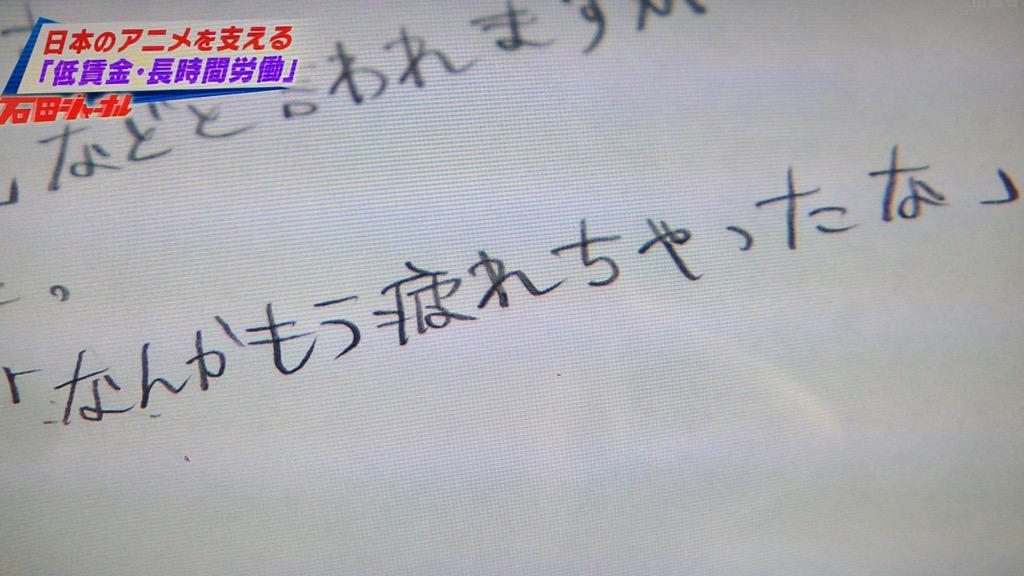 日本のアニメを支える
「低賃金・長時間労働」
石田ジャーナル
」などと言われますが
。
「なんかもう疲れちゃったな」